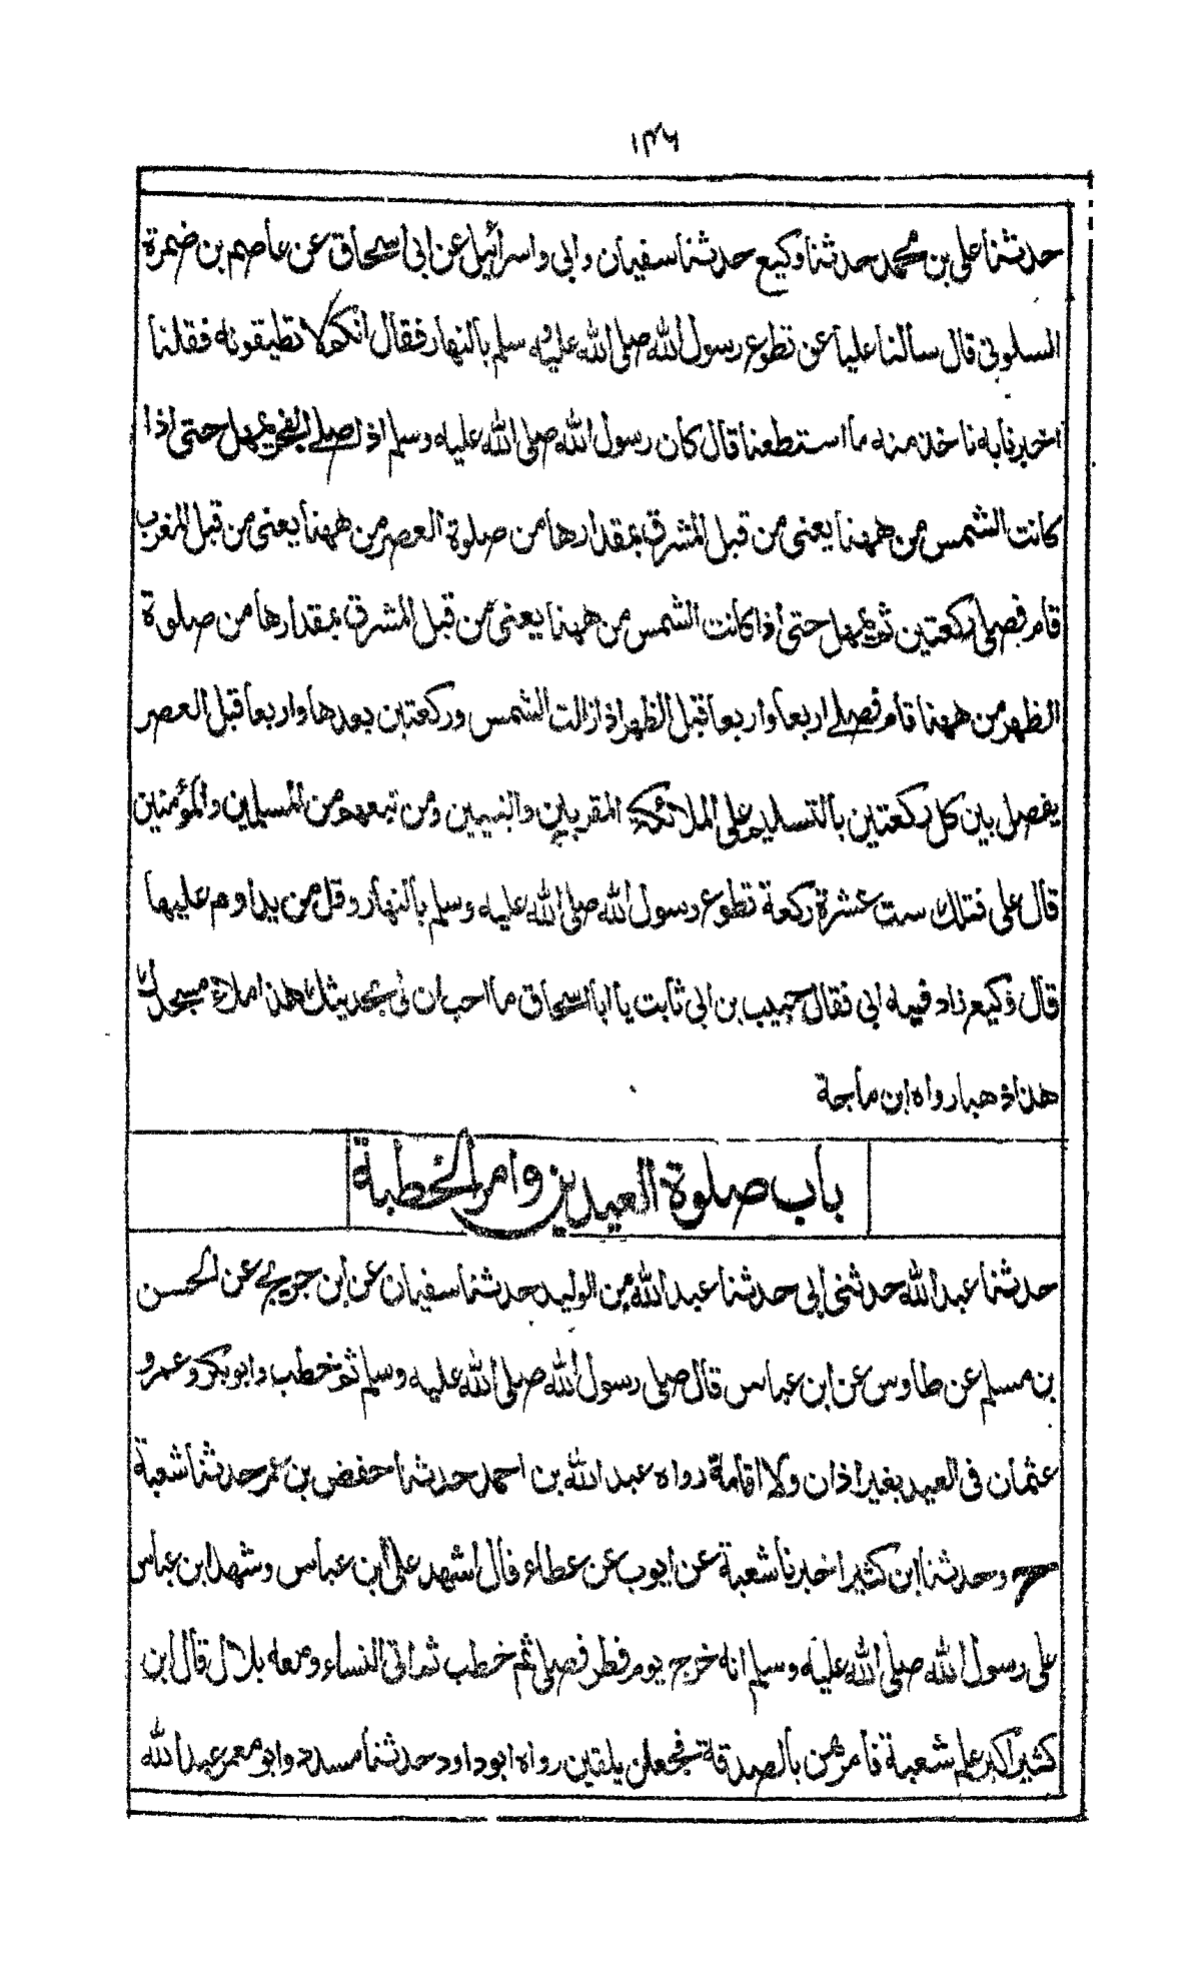 ١٣٦
حدثنا علي بن محمد حدثنا وكيع حدثنا سفيان وابي واسرائيل عن ابي اسحاق عن عاصم بن ضمرة
السلوني قال سالنا عليا عن تطوع رسول الله صلى الله عليه وسلم بالنهار فقال انكم لا تطيقونه فقلنا
اخبرنا به ناخذ منه ما استطعنا قال كان رسول الله صلى الله عليه وسلم اذا صلى الفجر يمهل حتى اذا
كانت الشمس من ههنا يعني من قبل المشرق بمقدارها من صلوة العصر من ههنا يعني من قبل المغرب
قام فصلى ركعتين ثم يمهل حتى اذا كانت الشمس من ههنا يعني من قبل المشرق بمقدارها من صلوة
الظهر من ههنا قام فصلى اربعا واربعا قبل الظهر اذا زالت الشمس وركعتين بعدها واربعا قبل العصر
يفصل بين كل ركعتين بالتسليم على الملائكة المقربين والنبيين ومن تبعهم من المسلمين والمؤمنين
قال علي فتلك ست عشرة ركعة تطوع رسول الله صلى الله عليه وسلم بالنهار وقل من يداوم عليها
قال وكيع زاد فيه ابي فقال حبيب بن ابي ثابت يا ابا اسحاق ما احب ان لي بحديثك هذا املاء مسجدك
هذا ذهبا رواه ابن ماجة
باب صلوة العيدين وامر الخطبة
حدثنا عبد الله حدثني ابي حدثنا عبد الله بن الوليد حدثنا سفيان عن ابن جريج عن الحسن
بن مسلم عن طاوس عن ابن عباس قال صلى رسول الله صلى الله عليه وسلم ثم خطب وابو بكر وعمر و
عثمان في العيد بغير اذان ولا اقامة رواه عبد الله بن احمد حدثنا حفض بن عمر حدثنا شعبة
ح وحدثنا ابن كثير اخبرنا شعبة عن ايوب عن عطاء قال اشهد على ابن عباس وشهد ابن عباس
على رسول الله صلى الله عليه وسلم انه خرج يوم فطر فصلى ثم خطب ثم اتى النساء ومعه بلال قال ابن
كثير اكبر علم شعبة فامرهن بالصدقة فجعلن يلقين رواه ابو داود حدثنا مسدد وابو معمر عبد الله